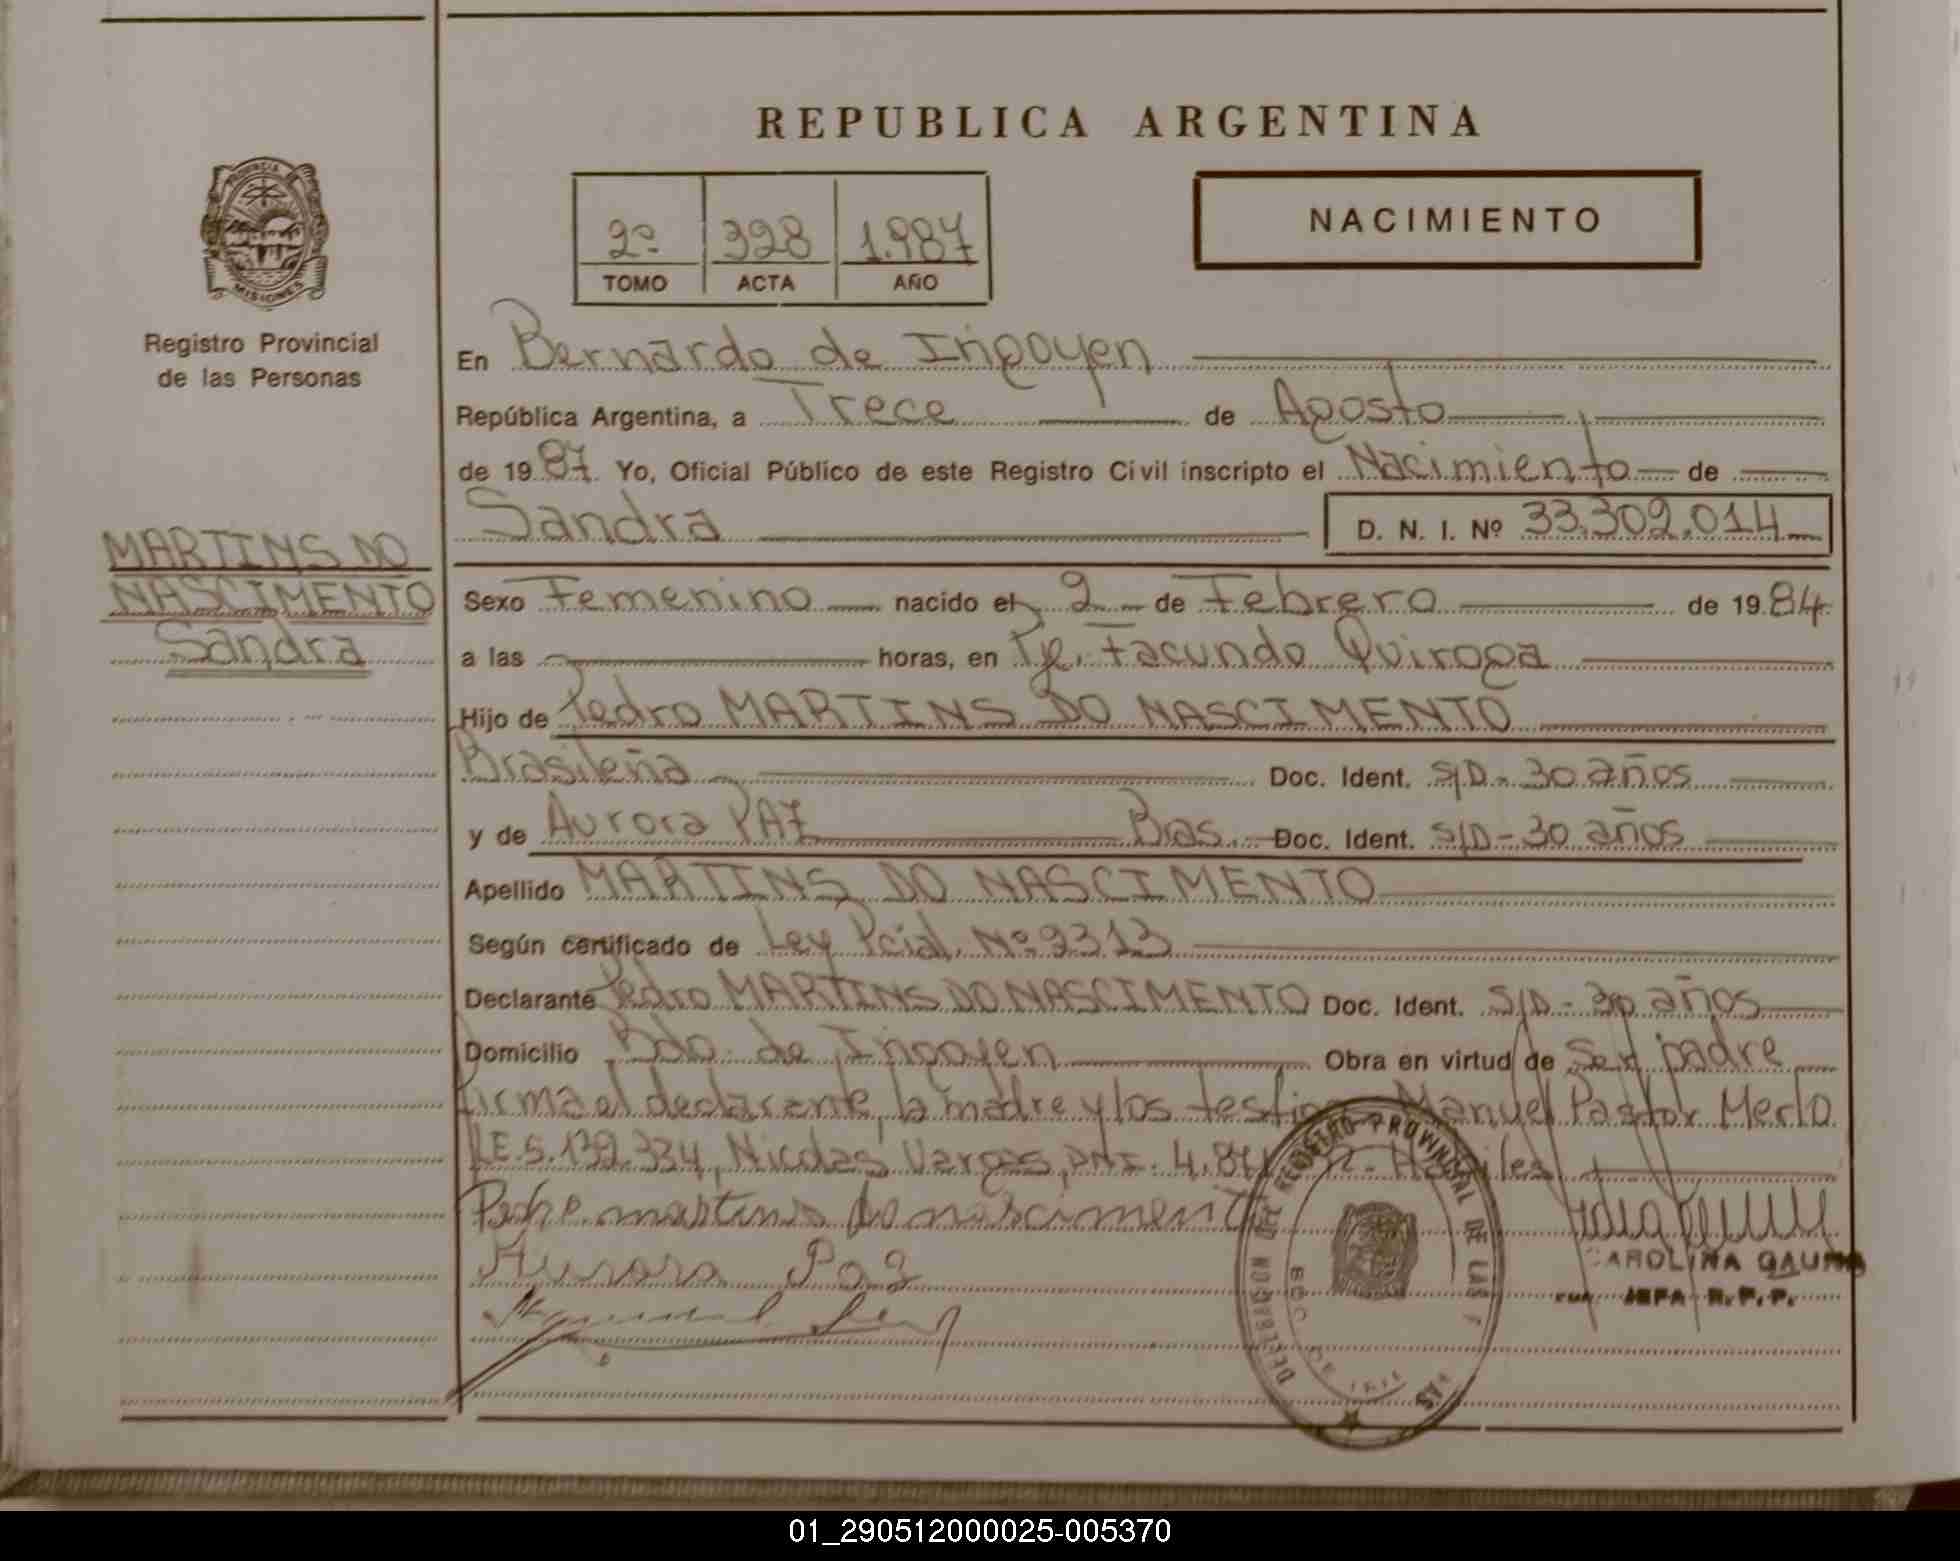 REPUBLICA ARGENTINA
PROVINCIA
MISIONES
Registro Provincial
de las Personas
2º 328 1.987
TOMO ACTA AÑO
NACIMIENTO
En Bernardo de Irigoyen
República Argentina, a Trece de Agosto
de 1987. Yo, Oficial Público de este Registro Civil inscripto el Nacimiento de
Sandra D. N. I. Nº 33.302.014
MARTINS DO
NASCIMENTO
Sandra
Sexo Femenino nacido el 2 de Febrero de 1984
a las horas, en Facundo Quiroga
Hijo de Pedro MARTINS DO NASCIMENTO
Brasileña Doc. Ident. S/D - 30 años
y de Aurora PAZ Bras. Doc. Ident. S/D - 30 años
Apellido MARTINS DO NASCIMENTO
Según certificado de Ley Pcial. Nº 2313
Declarante Pedro MARTINS DO NASCIMENTO Doc. Ident. S/D - 30 años
Domicilio Bdo. de Irigoyen Obra en virtud de Ser padre
firma el declarante, la madre y los testigos Manuel Pastor Merlo
LE. 5.139.334, Nicolas Vargas, DNI. Habiles
Pedro martins do nascimento
Aurora Paz
REGISTRO PROVINCIAL DE LAS
CAROLINA GAUNA
JEFA R.P.P.
01_290512000025-005370